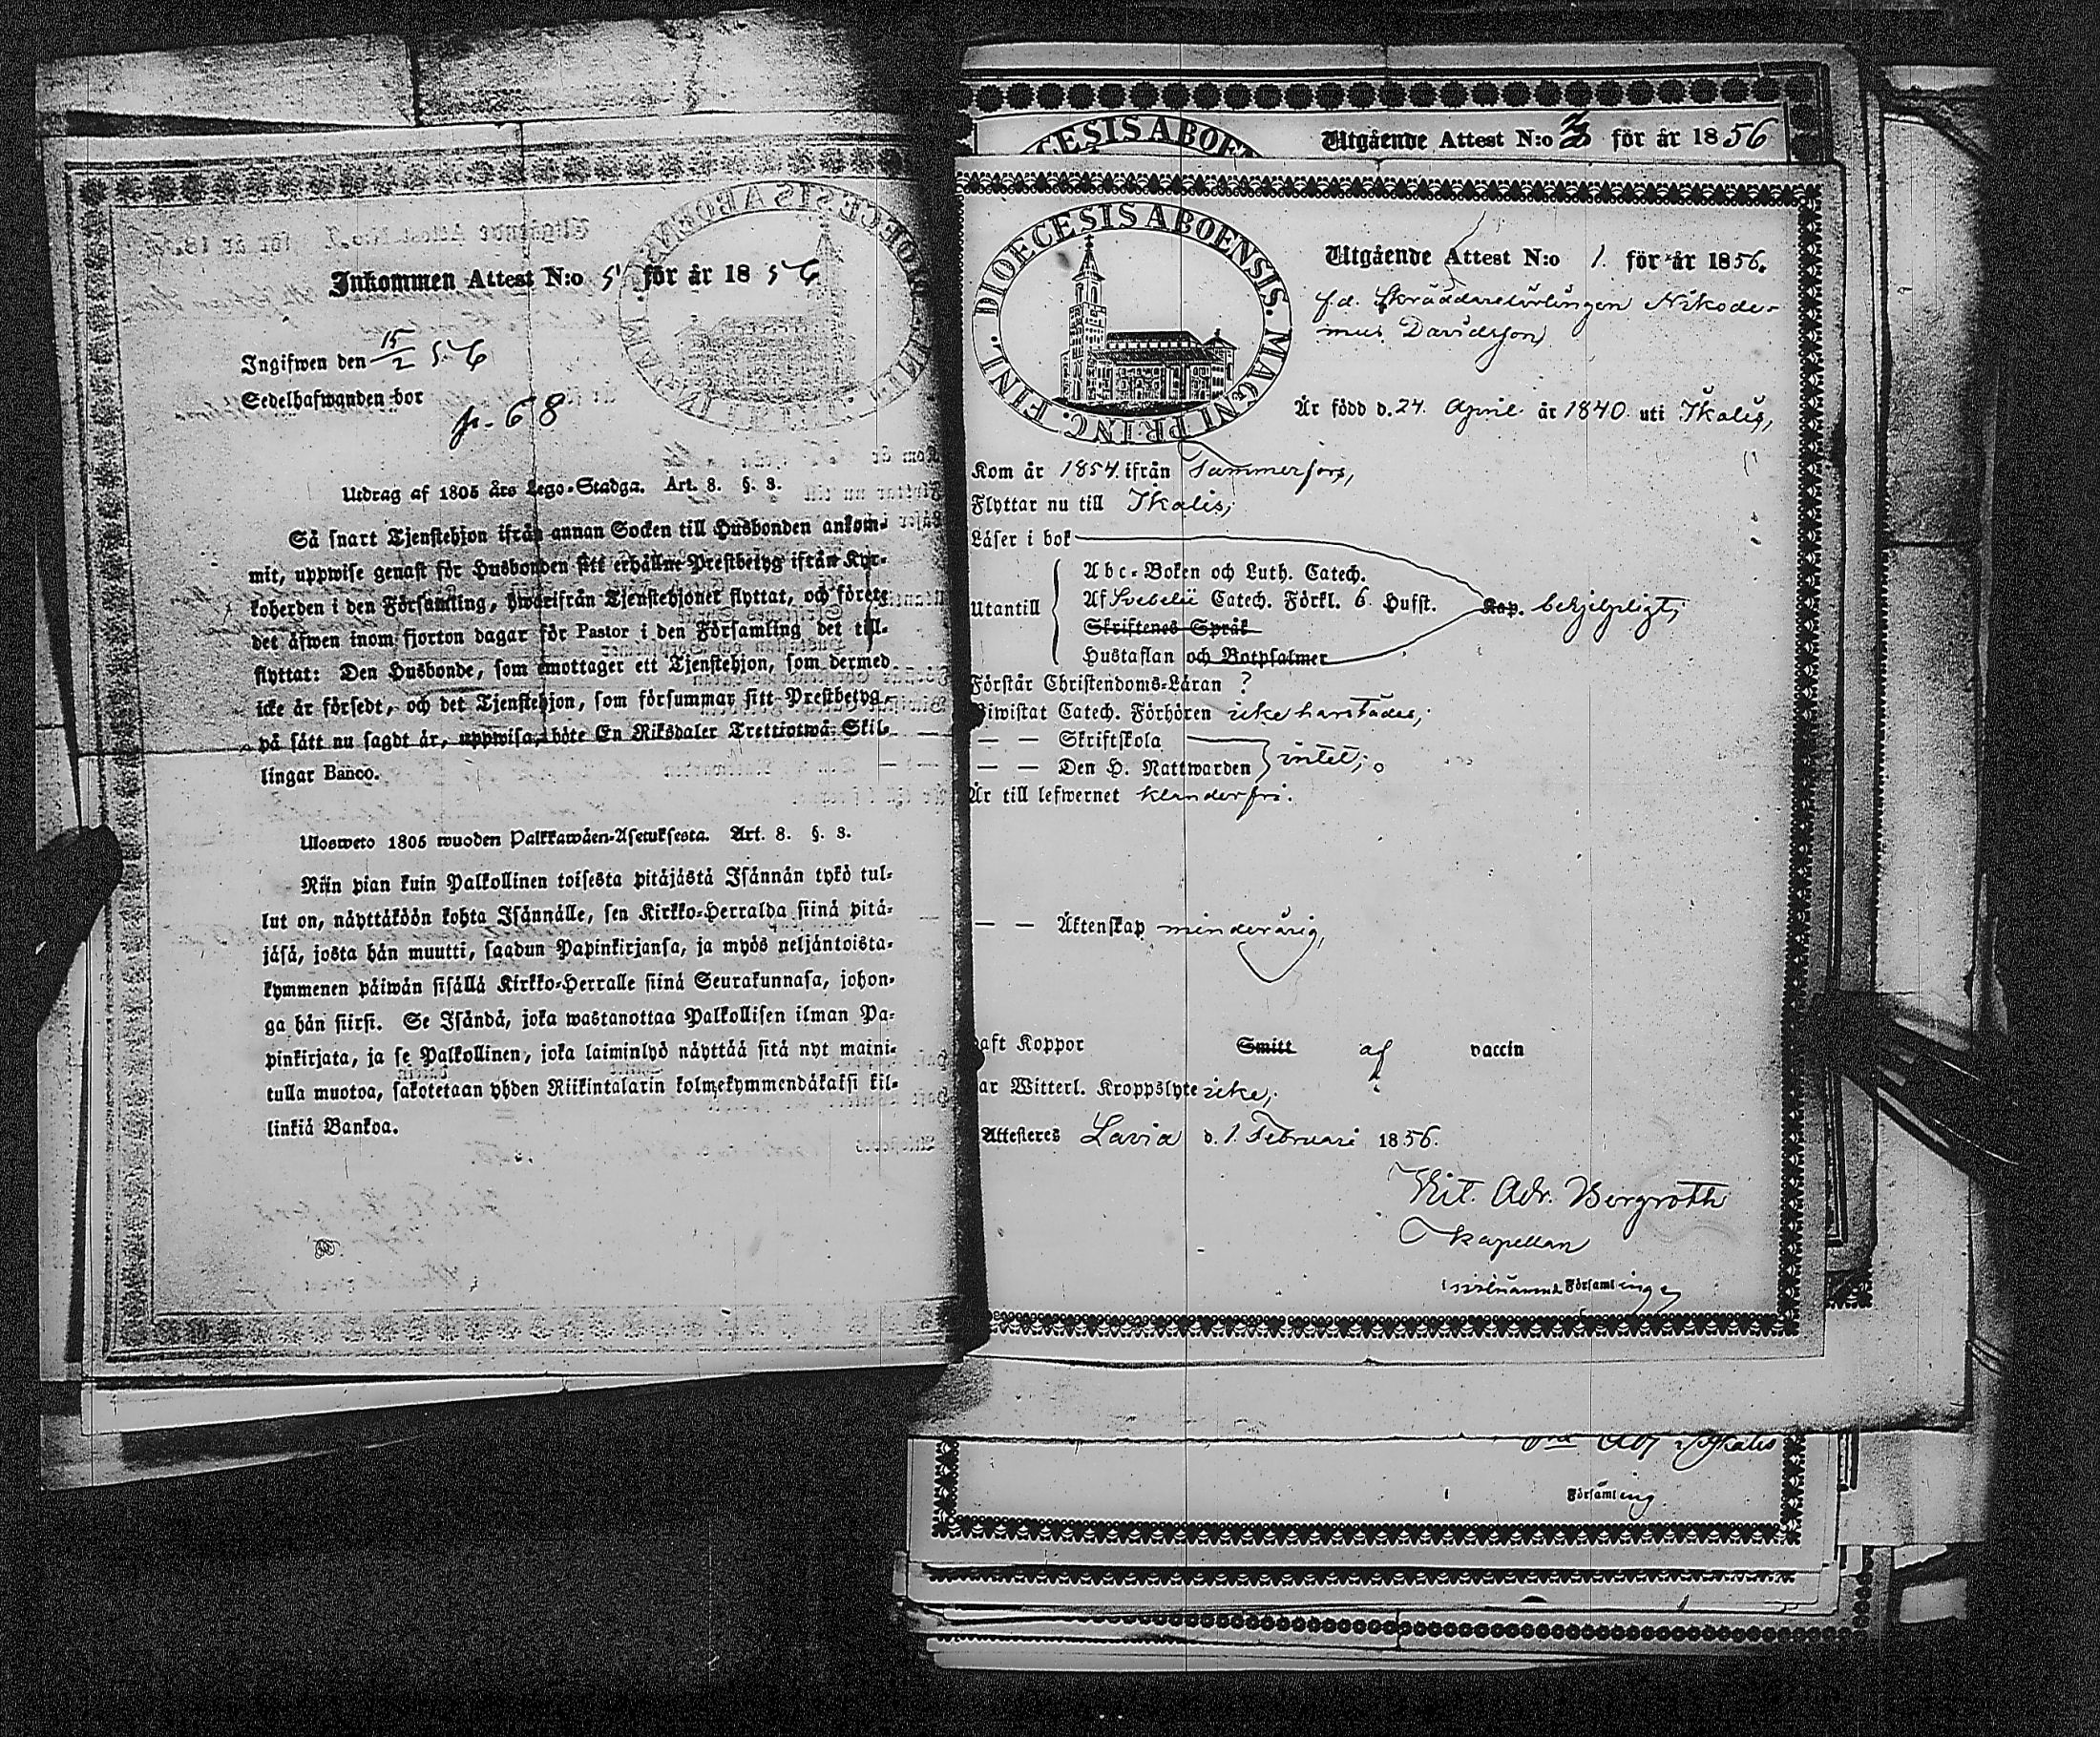 Inkommen Attest N:o 5 för år 1856
Ingifwen den 15/2 56
Sedelhafwanden bor
p. 68
Utdrag af 1805 års Lego-Stadga. Art. 8. §. 8.
Så snart Tjenstehjon ifrån annan Socken till Husbonden ankom-
mit, uppwise genast för Husbonden sitt erhållne Prestbetyg ifrån Kyr-
koherden i den Församling, hwarifrån Tjenstehjonet flyttat, och förete
det äfwen inom fjorton dagar för Pastor i den Församling det till-
flyttat: Den Husbonde, som emottager ett Tjenstehjon, som dermed
icke är försedt, och det Tjenstehjon, som försummar sitt Prestbetyg,
på sätt nu sagdt är, uppwisa, böte En Riksdaler Trettiotwå Skil-
lingar Banco.
Ulosweto 1805 wuoden Palkkawäen-Asetuksesta. Art. 8. §. 8.
Niin pian kuin Palkollinen toisesta pitäjästä Isännän tykö tul-
lut on, näyttäköön kohta Isännälle, sen Kirkko-Herralda siinä pitä-
jäsä, josta hän muutti, saadun Papinkirjansa, ja myös neljäntoista-
kymmenen päiwän sisällä Kirkko-Herralle siinä Seurakunnasa, johon-
ga hän siirsi. Se Isändä, joka wastanottaa Palkollisen ilman Pa-
pinkirjata, ja se Palkollinen, joka laiminlyö näyttää sitä nyt maini-
tulla muotoa, sakotetaan yhden Riikintalarin kolmekymmendäkaksi kil-
linkiä Bankoa.
DIOECESIS ABOEN
Utgående Attest N:o 3 för år 1856
DIOECESIS ABOENSIS. MAGNI PRINC. FINL.
Utgående Attest N:o 1. för år 1856.
f.d. Skräddarelärlingen Nikode-
mus Davidsson
Är född d. 24. April år 1840. uti Ikalis,
Kom år 1854. ifrån Tammerfors,
Flyttar nu till Ikalis,
Läser i bok
Utantill Abc-Boken och Luth. Catech.
Af Svebelii Catech. Förkl. 6. Hufst. Kap. behjelpligt;
Skriftenes Språk
Hustaflan och Botpsalmer
Förstår Christendoms-Läran ?
Biwistat Catech. Förhören icke härstädes,
— — Skriftskola
— — Den H. Nattwarden intet;
Är till lefwernet klanderfri.
— — Äktenskap minderårig,
aft Koppor Smitt af vaccin
ar Witterl. Kroppslyte icke,
Attesteres Lavia d. 1. Februari 1856.
Kit. Adr. Bergroth
Kapellan
i Församling
Ikalis
i Församling